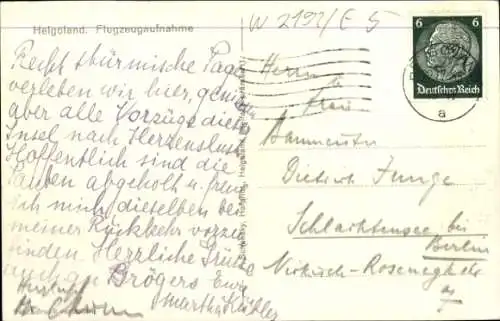 Helgoland. Flugzeugaufnahme
W 2192/E 5
6 6
Deutsches Reich
a
Recht stürmische Tage
verleben wir hier, genießen
aber alle Vorzüge dieser
Insel nach Herzenslust
Hoffentlich sind die
Tauben abgeholt u. freue
ich mich dieselben bei
meiner Rückkehr vorzu-
finden. Herzliche Grüße
auch an Brögers Eure
Martha
Herrn u
Frau
Dietrich Junge
Schlachtensee bei
Berlin